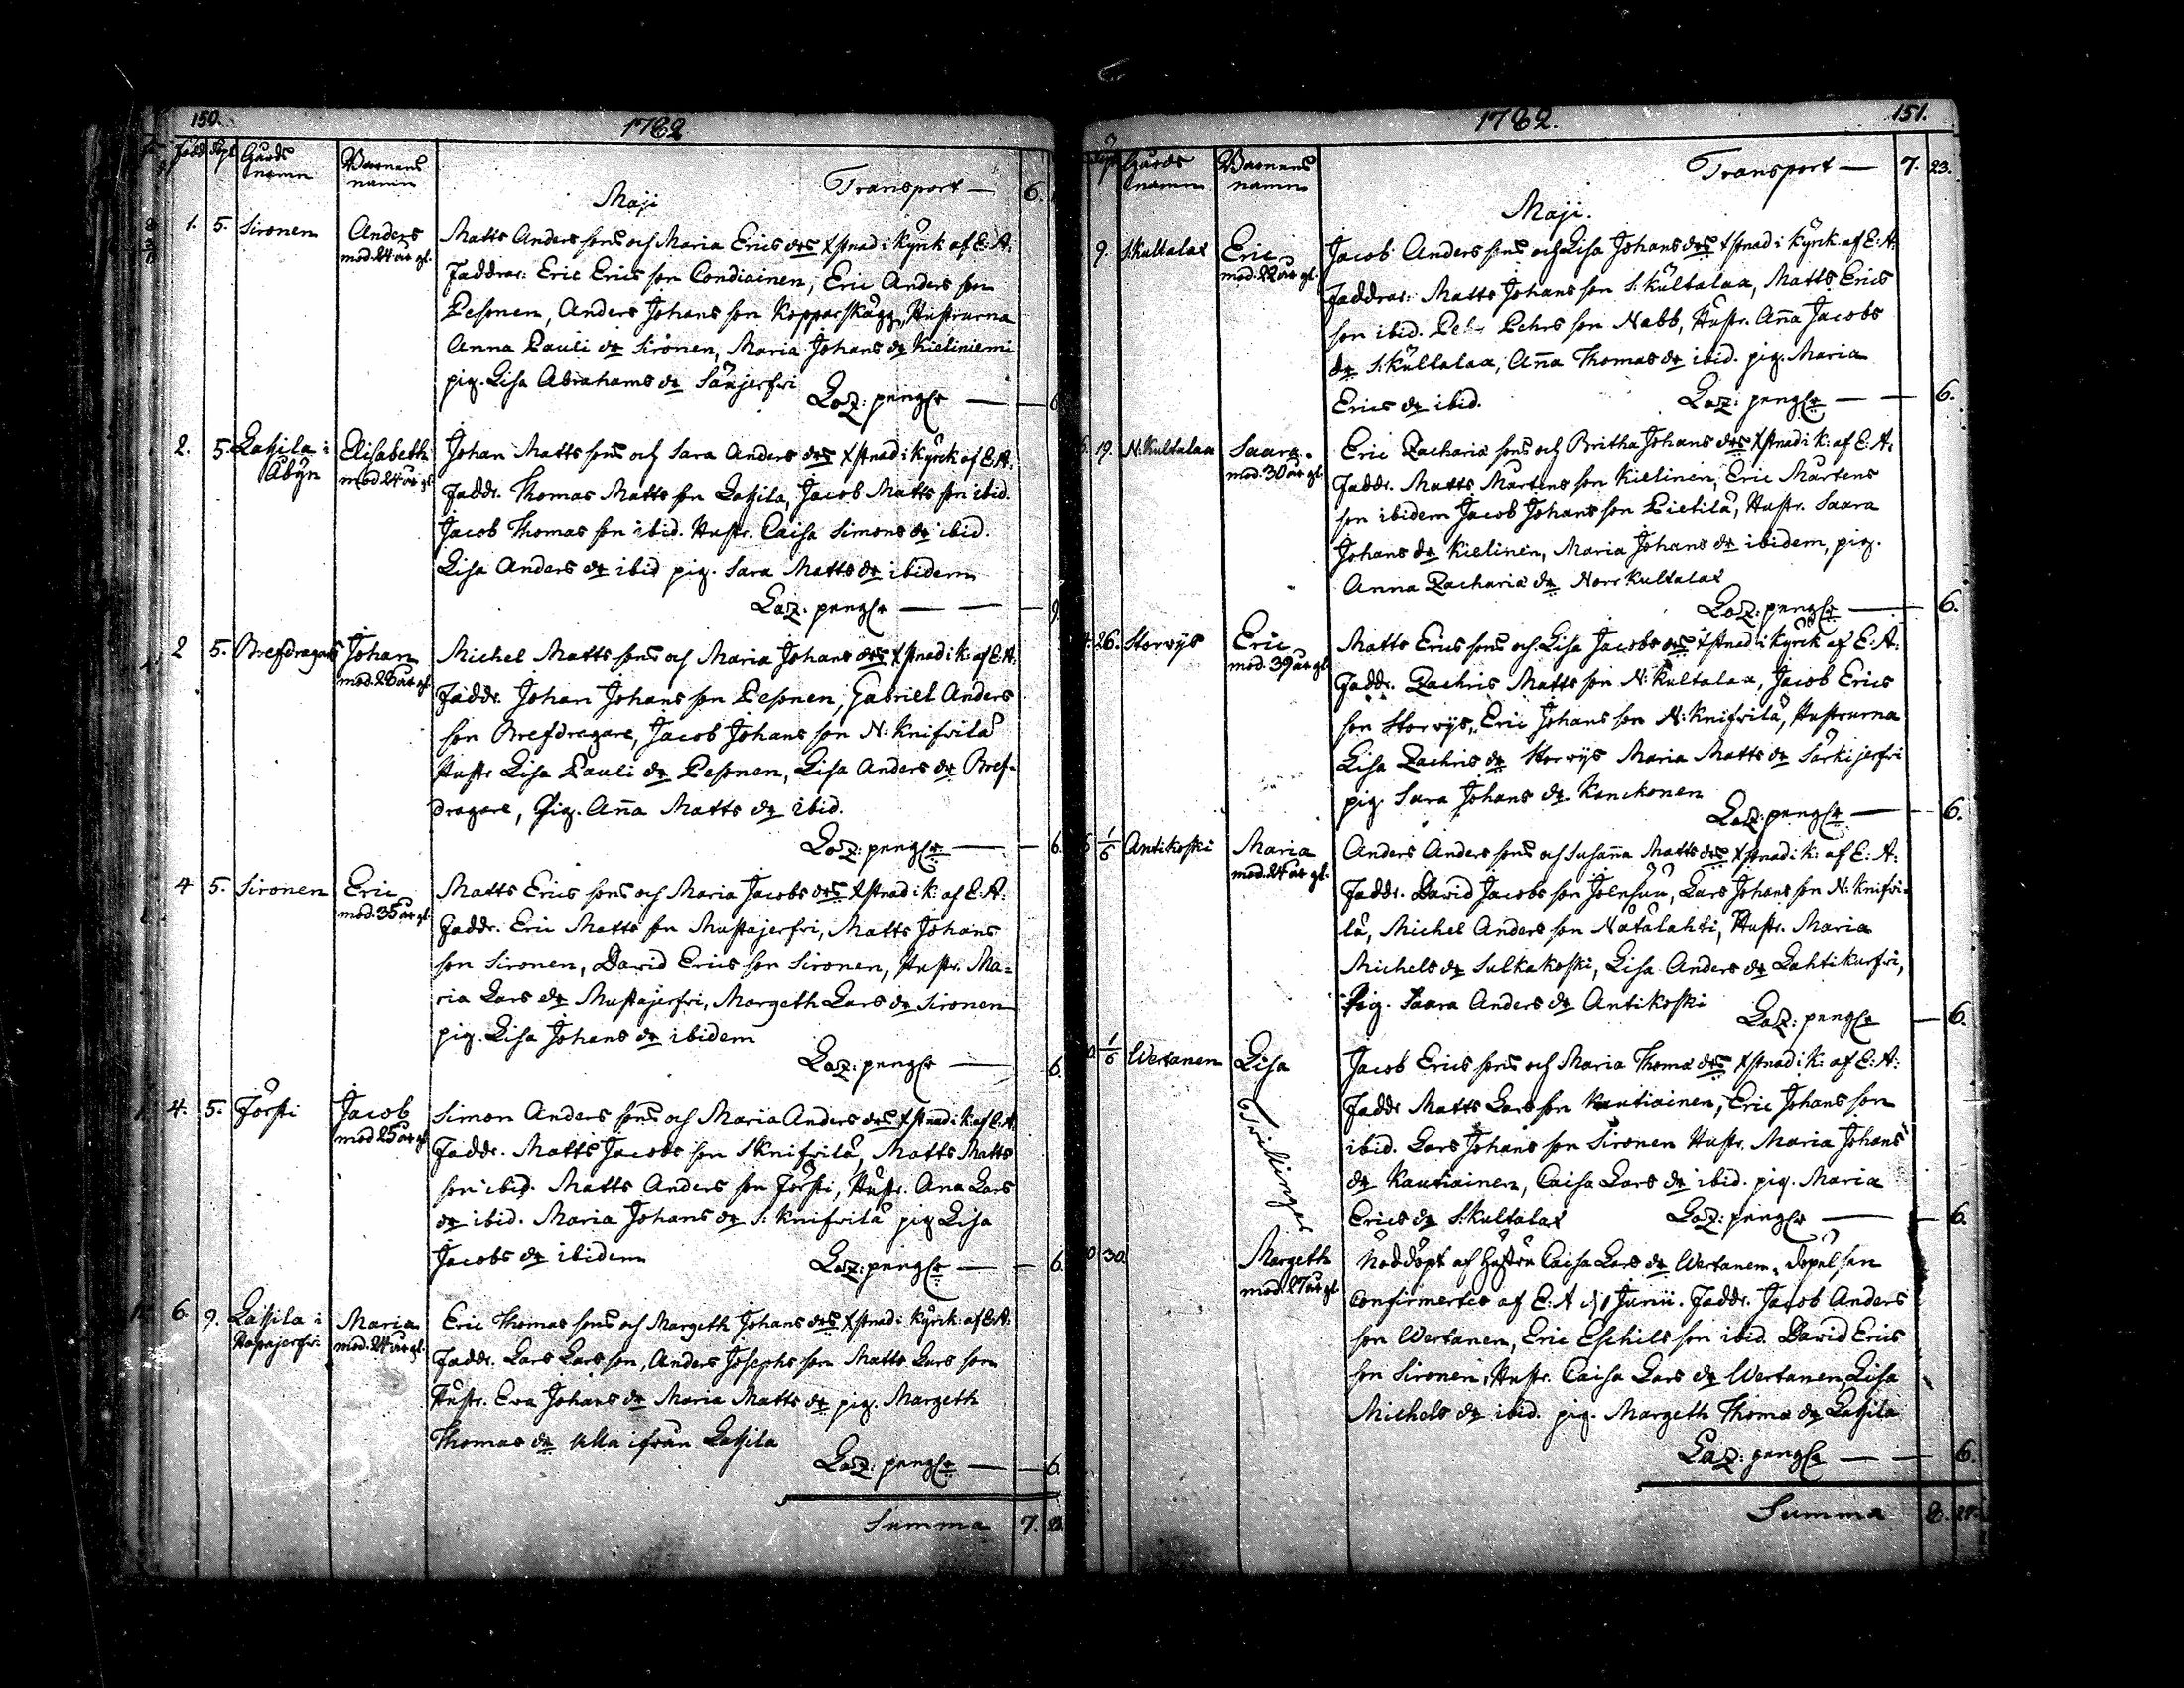 150.
1782
Född Döpt Gårds namn Barnens namn
Transport — 6.
Maji
1. 5. Sironen Anders Matts Anders sons och Maria Erics drs Xstnad i Kyrk af E: A:
mod. 24 år gl. Faddrar: Eric Erics son Condiainen, Eric Anders son
Pesonen, Anders Johans son Kopparskägg, Hustrurna
Anna Pauli dr Sironen, Maria Johans dr Kieliniemi
pig. Lisa Abrahams dr Sänjerfvi
Laz: peng:r — — 6
2. 5. Lassila i Elisabeth Johan Matts sons och Sara Anders drs Xstnad i Kyrk af E: A:
Åbyn mod 24 år gl. Faddr. Thomas Matts son Lassila, Jacob Matts son ibid.
Jacob Thomas son ibid. Hustr. Caisa Simons dr ibid.
Lisa Anders dr ibid pig. Sara Matts dr ibidem
Laz: peng:r — — 9
2 5. Brefdragare Johan Michel Matts sons och Maria Johans drs Xstnad i K: af E: A:
mod. 28 år gl. Faddr. Johan Johans son Pesonen, Gabriel Anders
son Brefdragare, Jacob Johans son N: Knifvilä
Hustr Lisa Pauli dr Pesonen, Lisa Anders dr Bref-
dragare, Pig. Anna Matts dr ibid.
Laz: peng:r — — 6.
4 5. Sironen Eric Matts Erics sons och Maria Jacobs drs Xstnad i K: af E: A:
mod. 35 år gl. Faddr. Eric Matts son Mustajerfvi, Matts Johans
son Sironen, David Erics son Sironen, Hustr. Ma=
ria Lars dr Mustajerfvi, Margeth Lars dr Sironen
pig. Lisa Johans dr ibidem
Laz: peng:r — 6.
4. 5. Försti Jacob Simon Anders sons och Maria Anders drs Xstnad i K: af E: A:
mod 25 år gl Faddr. Matts Jacobs son S Knifvilä, Matts Matts
son ibid. Matts Anders son Försti, Hustr. Ana Lars
dr ibid. Maria Johans dr S: Knifvilä pig Lisa
Jacobs dr ibidem Laz: peng:r — — 6.
6. 9. Lassila i Maria Eric Thomas sons och Margeth Johans drs Xstnad i Kyrk: af E: A:
Hapajerfvi mod. 24 år gl. Faddr. Lars Lars son, Anders Josephs son Matts Lars son
Hustr. Eva Johans dr Maria Matts dr pig. Margeth
Thomas dr alla ifrån Lassila
Laz: peng:r — — 6.
Summa 7. 23.
1782. 151.
Döpt Gårds namn Barnens namn
Transport — 7. 23.
Maji.
9. S: Kultalax Eric Jacob Anders sons och Lisa Johans drs Xstnad i Kyrk. af E: A:
mod. 22 år gl. Faddrar: Matts Johans son S: Kultalaa, Matts Erics
son ibid. Pehr Pehrs son Nabb, Hustr. Anna Jacobs
dr S: Kultalaa, Anna Thomas dr ibid. pig. Maria
Erics dr ibid. Laz: peng:r — — 6.
19. N: Kultalaa Saara. Eric Zacharia sons och Britha Johans drs Xstnad i K: af E: A:
mod. 30 år gl. Faddr. Matts Mårtens son Kielinen, Eric Mårtens
son ibidem Jacob Johans son Pietilä, Hustr. Saara
Johans dr Kielinen, Maria Johans dr ibidem, pig.
Anna Zacharia dr Norr Kultalax
Laz: peng:r — 6.
26. Storwijs Eric Matts Erics sons och Lisa Jacobs drs Xstnad i Kyrk af E: A:
mod. 39 år gl Faddr. Zachris Matts son N: Kultalaa, Jacob Erics
son Storwijs, Eric Johans son N: Knifvilä, Hustrurna
Lisa Zachris dr Storwijs Maria Matts dr Särkijerfvi
pig. Sara Johans dr Kanckonen
Laz: peng:r — — 6.
1/6 Antikoski Maria Anders Anders sons och Susanna Matts drs Xstnad i K: af E: A:
mod. 24 år gl. Faddr. David Jacobs son Joensuu, Lars Johans son N: Knifvi-
lä, Michel Anders son Nätälahti, Hustr. Maria
Michels dr Sulkakoski, Lisa Anders dr Lahtikurfvi,
Pig. Saara Anders dr Antikoski
Laz: peng:r — 6.
1/6 Wertanen Lisa Jacob Erics sons och Maria Thoma drs Xstnad i K: af E: A:
Faddr Matts Lars son Kautiainen, Eric Johans son
Tvillingar ibid. Lars Johans son Sironen Hustr. Maria Johans
dr Kautiainen, Caisa Lars dr ibid. pig. Maria
Erics dr S: Kultalax Laz: peng:r — — 6.
30. Margeth Nöddöpt af Hustru Caisa Lars dr Wertanen, döpelsen
mod. 27 år gl Confirmertes af E: A d. 1 Junii. Faddr. Jacob Anders
son Wertanen, Eric Eschils son ibid. David Erics
son Sironen, Hustr. Caisa Lars dr Wertanen, Lisa
Michels dr ibid. pig. Margeth Thoma dr Lassila
Laz: peng:r — — 6.
Summa 8.